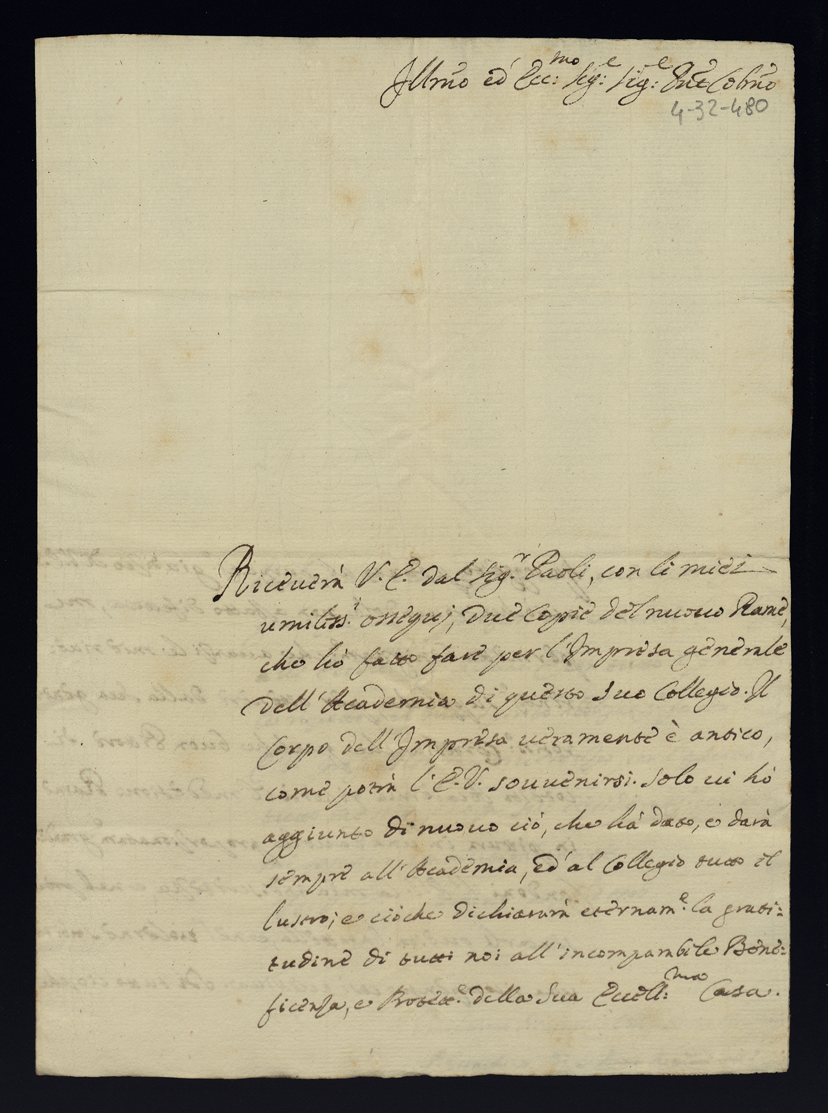 Illm̃o ed Ecc:mo Sig:e Sig:e Pne Colm̃o
4-32-480
Riceverà V. E. dal Sig.r Paoli, con li miei
umiliss.i ossequj, due Copie del nuovo Rame,
che hò fatto fare per l'Impresa generale
dell'Academia di questo suo Collegio. Il
Corpo dell'Impresa veramente è antico,
come potrà l'E.V. souvenirsi. Solo vi hò
aggiunto di nuovo ciò, che hà dato, e darà
sempre all'Academia, ed al Collegio tutto il
lustro; e ciò che dichiarerà eternam.e la grati=
tudine di tutti noi all'incomparabile Bene=
ficenza, e Protett.e della Sua Eccell:ma Casa.